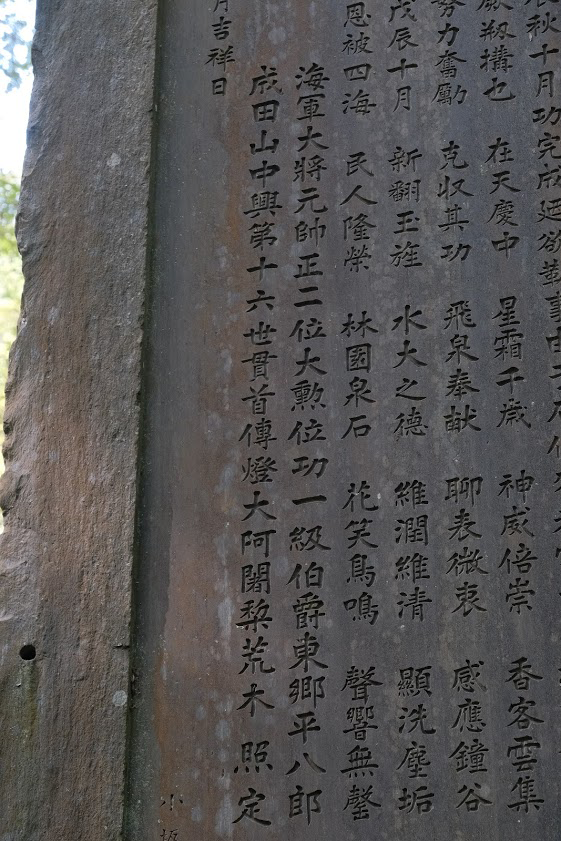 秋十月功完成廼欲
搆也 在天慶中 星霜千歳 神威倍崇 香客雲集
努力奮勵 克収其功 飛泉奉献 聊表微衷 感應鐘谷
戊辰十月 新翻玉旌 水大之德 維潤維清 顯洗塵垢
恩被四海 民人隆榮 林園泉石 花笑鳥鳴 聲響無罄
海軍大將元帥正二位大勲位功一級伯爵東郷平八郎
成田山中興第十六世貫首傳燈大阿闍梨荒木照定
月吉祥日
小坂